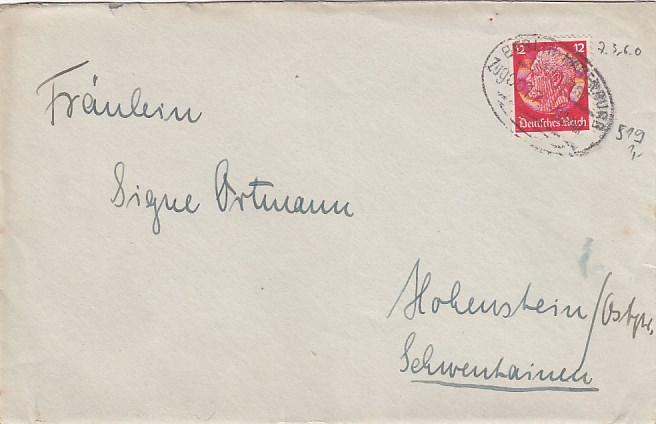 12 12
Deutsches Reich
Fräulein
Signe Ortmann
Hohenstein/Ostpr.
Schwentainen
819